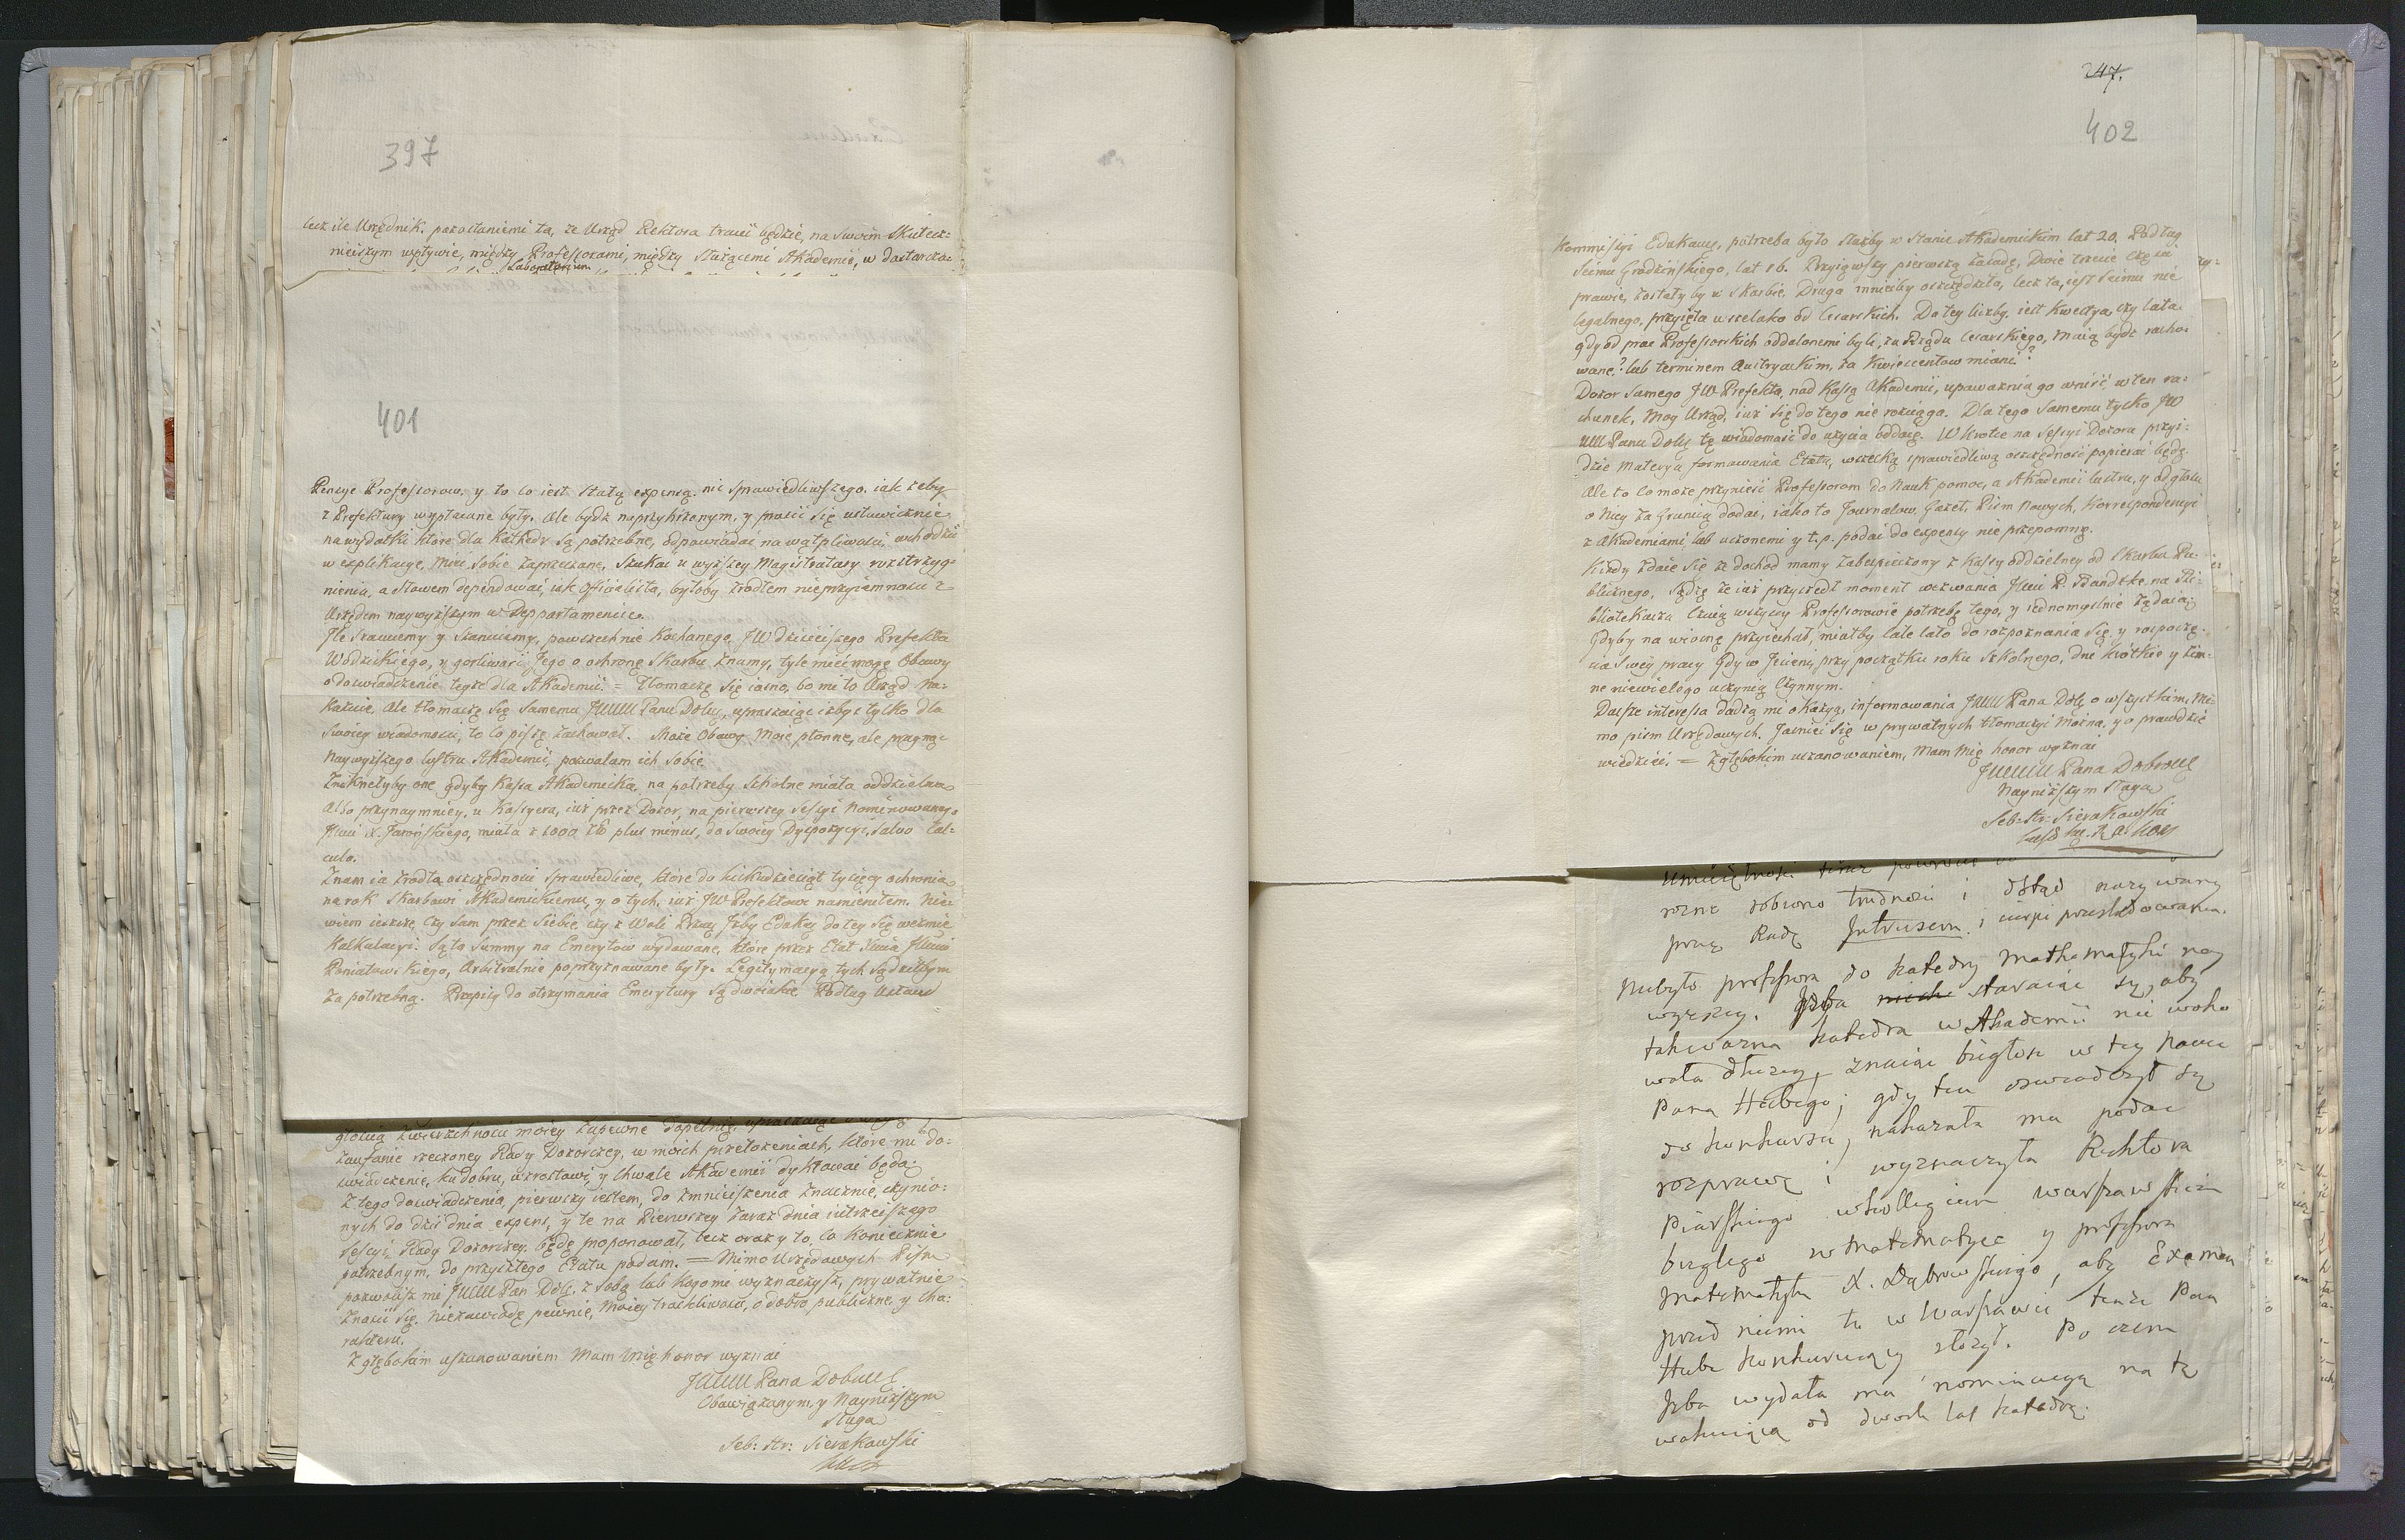 397
lecz ile Urzędnik. pozostaniemi ta, że Urząd Rektora tracić będzie, na swoim Skutecz:
nieiszym wpływie, między Professorami, między Służącemi Akademii, w dostarcza:
Laboratorium
401
Pensye Professorow. y to co iest stałą expensą. nic sprawiedliwszego. iak żeby
z Prefektury wypłacane były. Ale bydź naprzykrzonym, y prosić się ustawicznie
na wydatki które dla Kathedr są potrzebne, odpowiadać na wątpliwości, wchodzić
w explikacye, mieć sobie zaprzeczane, Szukać u wyższey Magistratury rozstrzyg:
nienia, a słowem dependować, iak officialista, byłoby źrodłem nieprzyiemności z
Urzędem naywyższym w Departamencie.
Ile Szanuiemy y Szanuiemy, powszechnie Kochanego JW dzisieiszego Prefekta
Wodzickiego, y gorliwość Jego o ochronę Skarbu znamy, tyle mieć mogę Obawy
o doświadczenie tegoż dla Akademii. = Tłomaczę się iasno, bo mi to Urząd na:
kazuie. Ale tłomaczę się samemu JWWW Panu Dobr, upraszaiąc iżbyś tylko dla
swoiey wiadomości, to co piszę zachował. Może Obawy moie płonne, ale pragnąc
naywyższego lustru Akademii, pozwalam ich sobie.
Zniknęłyby one gdyby Kassa Akademicka, na potrzeby Szkolne miała oddzielną
albo przynaymniey, u Kassyera, iuż przez Dozor, na pierwszey Sessyi nominowanego
JX. Jarońskiego, miała z 1000 zł plus minus, do swoiey Dyspozycyi, salvo cal:
culo.
Znam ia źrodła oszczędności sprawiedliwe, które do kilkudziesiąt tysięcy ochronią
na rok Skarbowi Akademickiemu, y o tych, iuż JW Prefektowi namieniłem. Nie
wiem ieszcze, czy sam przez siebie, czy z Woli Przes. Jzby Edukcy do tey się weźmie
Kalkulacyi: Są to summy na Emerytow wydawane, które przez Etat Xcia
Poniatowskiego, Arbitralnie poprzyznawane były. Legitymacyą tych sądziłbym
za potrzebną. Przepisy do otrzymania Emerytury są dwoiakie. Podług Ustaw
zaufanie rzeczoney Rady Dozorczey, w moich przełożeniach, które mi do:
świadczenie, ku dobru, wzrostowi, y chwale Akademii dyktować będą.
Z tego doświadczenia, pierwszy iestem, do zmnieiszenia znacznie, czynio:
nych do dziś dnia expens, y te na Pierwszey zaraz dnia iutrzeyszego
Sessyi, Rady Dozorczey. będę proponował, lecz oraz y to, co koniecznie
potrzebnym, do przyszłego Etatu podam. = Mimo Urzędowych Pism
pozwolisz mi JWWW Pan Dobr, z sobą lub kogo mi wyznaczysz, prywatnie
znosić się. Niezawiodę pewnie, moiey troskliwości, o dobro publiczne, y cha:
rakteru.
Z głębokim uszanowaniem Mam mię honor wyznać
JWWW Pana Dobr
Obowiązanym. y Nayniższym
Sługa
Seb: Hr: Sierakowski
247.
402
Kommissyi Edukacyi, potrzeba było służby w stanie Akademickim lat 20. Podług
Seimu Grodzińskiego, lat 16. Przyiąwszy pierwszą zasadę, Dwie trzecie części
prawie, zostały by w Skarbie. Druga mnieyby oszczędziła, lecz ta, iest Seimu nie
legalnego, przyięta wszelako od Cesarskich. Do tey liczby iest Kwestya, czy lata
gdy od prac Professorskich oddalonemi byli, za Rządu Cesarskiego, maią bydź racho:
wane? lub terminem Austryackim, za Kwiescentow miani?
Dozor samego JW Prefekta, nad Kassą Akademii, upoważnia go wniść w ten ra:
chunek, Moy Urząd, iuż się do tego nie rozciąga. Dla tego samemu tylko JW
Panu Dobr tę wiadomość do użycia oddaię. Wkrotce na Sessyi Dozoru przyi:
dzie materya formowania Etatu, wszelką sprawiedliwą oszczędność popierać będę.
Ale to co może przynieść Professorom do Nauk pomoc, a Akademii lustru, y odgłosu
o niey za Granicą dodać, iako to Journalow, Gazet, Pism nowych, Korrespondencyi
z Akademiami lub uczonemi y t. p. podać do expensy nie przepomnę.
Kiedy zdaie się że dochod mamy zabespieczony z Kassy oddzielney od Skarbu Pu:
blicznego, sądzę że iuż przyszedł moment wezwania P. Bandtke, na Bi:
bliotekarza. Czuią wszyscy Professorowie potrzebę tego, y iednomyślnie żądaią.
Gdyby na wiosnę przyiechał, miałby całe lato do rozpoznania się, y rozpoczę:
cia swey pracy. Gdy w Jesieni, przy początku roku szkolnego, dni krótkie y zim:
ne niewielego uczynią czynnym.
Dalsze interessa dadzą mi okazyą, informowania JWWW Pana Dobr o wszystkim, Mi:
mo pism Urzędowych. Jaśniei się w prywatnych tłomaczyć można, y o prawdzie
wiedzieć. = Z głębokim uszanowaniem, Mam mię honor wyznać
JWWW Pana Dobr
Nayniższym Sługa
Seb: Hr: Sierakowski
rozne robiono trudności i dotąd nazywany
przez Radę Intrusem. i cierpi prześladowania.
Niebyło professora do katedry mathematyki nay
wyzszey. Izba starając się, aby
tak wazna katedra w Akademii nie wako
wała dłuzey, znając biegłość w tey nauce
Pana Hubego; gdy ten oswiadczył się
do konkursu, nakazała mu podać
rozprawę i wyznaczyła Rektora
Piarskiego w kollegium warszawskim
biegłego w matematyce y professora
matematyki X. Dąbrowskiego, aby Examen
przed niemi tu w Warszawie tenże Pan
Hube konkurujący złozył. Po czem
Izba wydała mu nominacyą na tę
wakującą od dwoch lat katedrę.